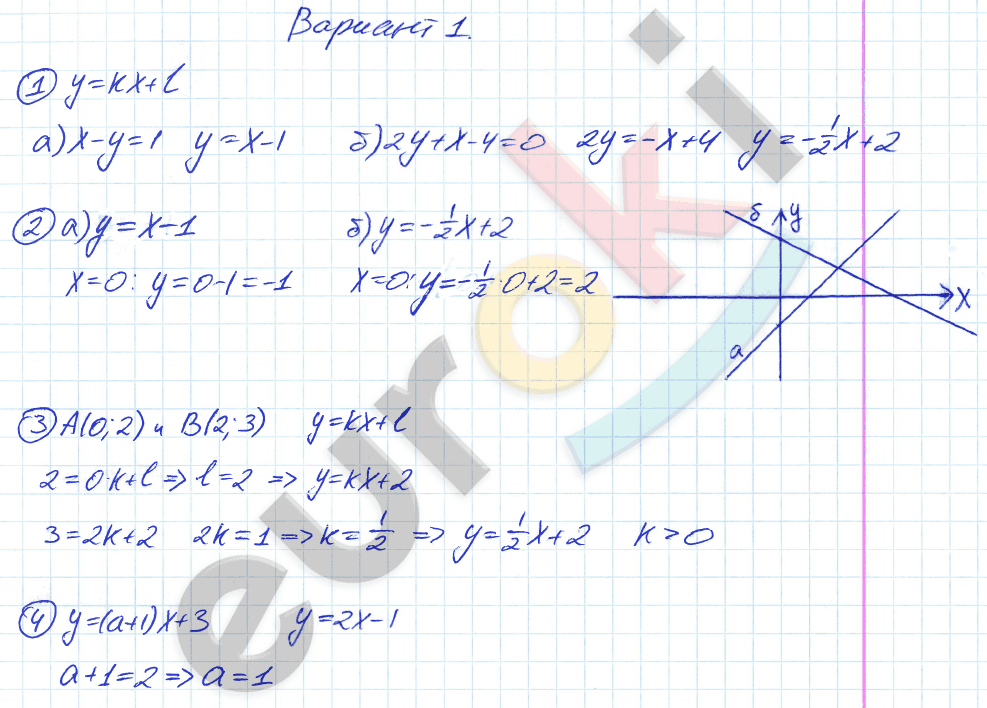 Вариант 1.
① y=kx+l
а) x-y=1 y=x-1 б) 2y+x-4=0 2y=-x+4 y=-1/2x+2
② а) y=x-1 б) y=-1/2x+2
x=0: y=0-1=-1 x=0: y=-1/2·0+2=2
б y
x
а
③ A(0;2) и B(2;3) y=kx+l
2=0·k+l => l=2 => y=kx+2
3=2k+2 2k=1 => k=1/2 => y=1/2x+2 k>0
④ y=(a+1)x+3 y=2x-1
a+1=2 => a=1
euroki